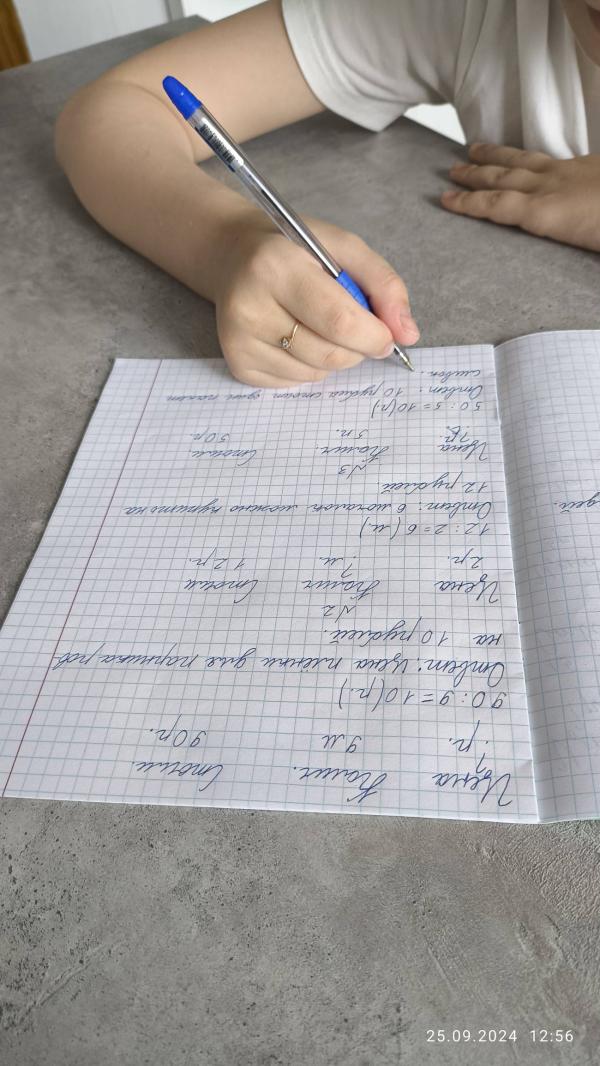 Цена Колич. Стоим.
? р. 9 м 90 р.
90 : 9 = 10 (р.)
Ответ: цена плёнки для парника рав
на 10 рублей.
№2
Цена Колич Стоим
2 р. ? м 12 р.
12 : 2 = 6 (м)
Ответ: 6 мочалок можно купить на
12 рублей.
№3
Цена Колич. Стоим
? р. 5 п. 50 р.
50 : 5 = 10 (р)
Ответ: 10 рублей стоит один пакет
сливок.
дей.
25.09.2024 12:56